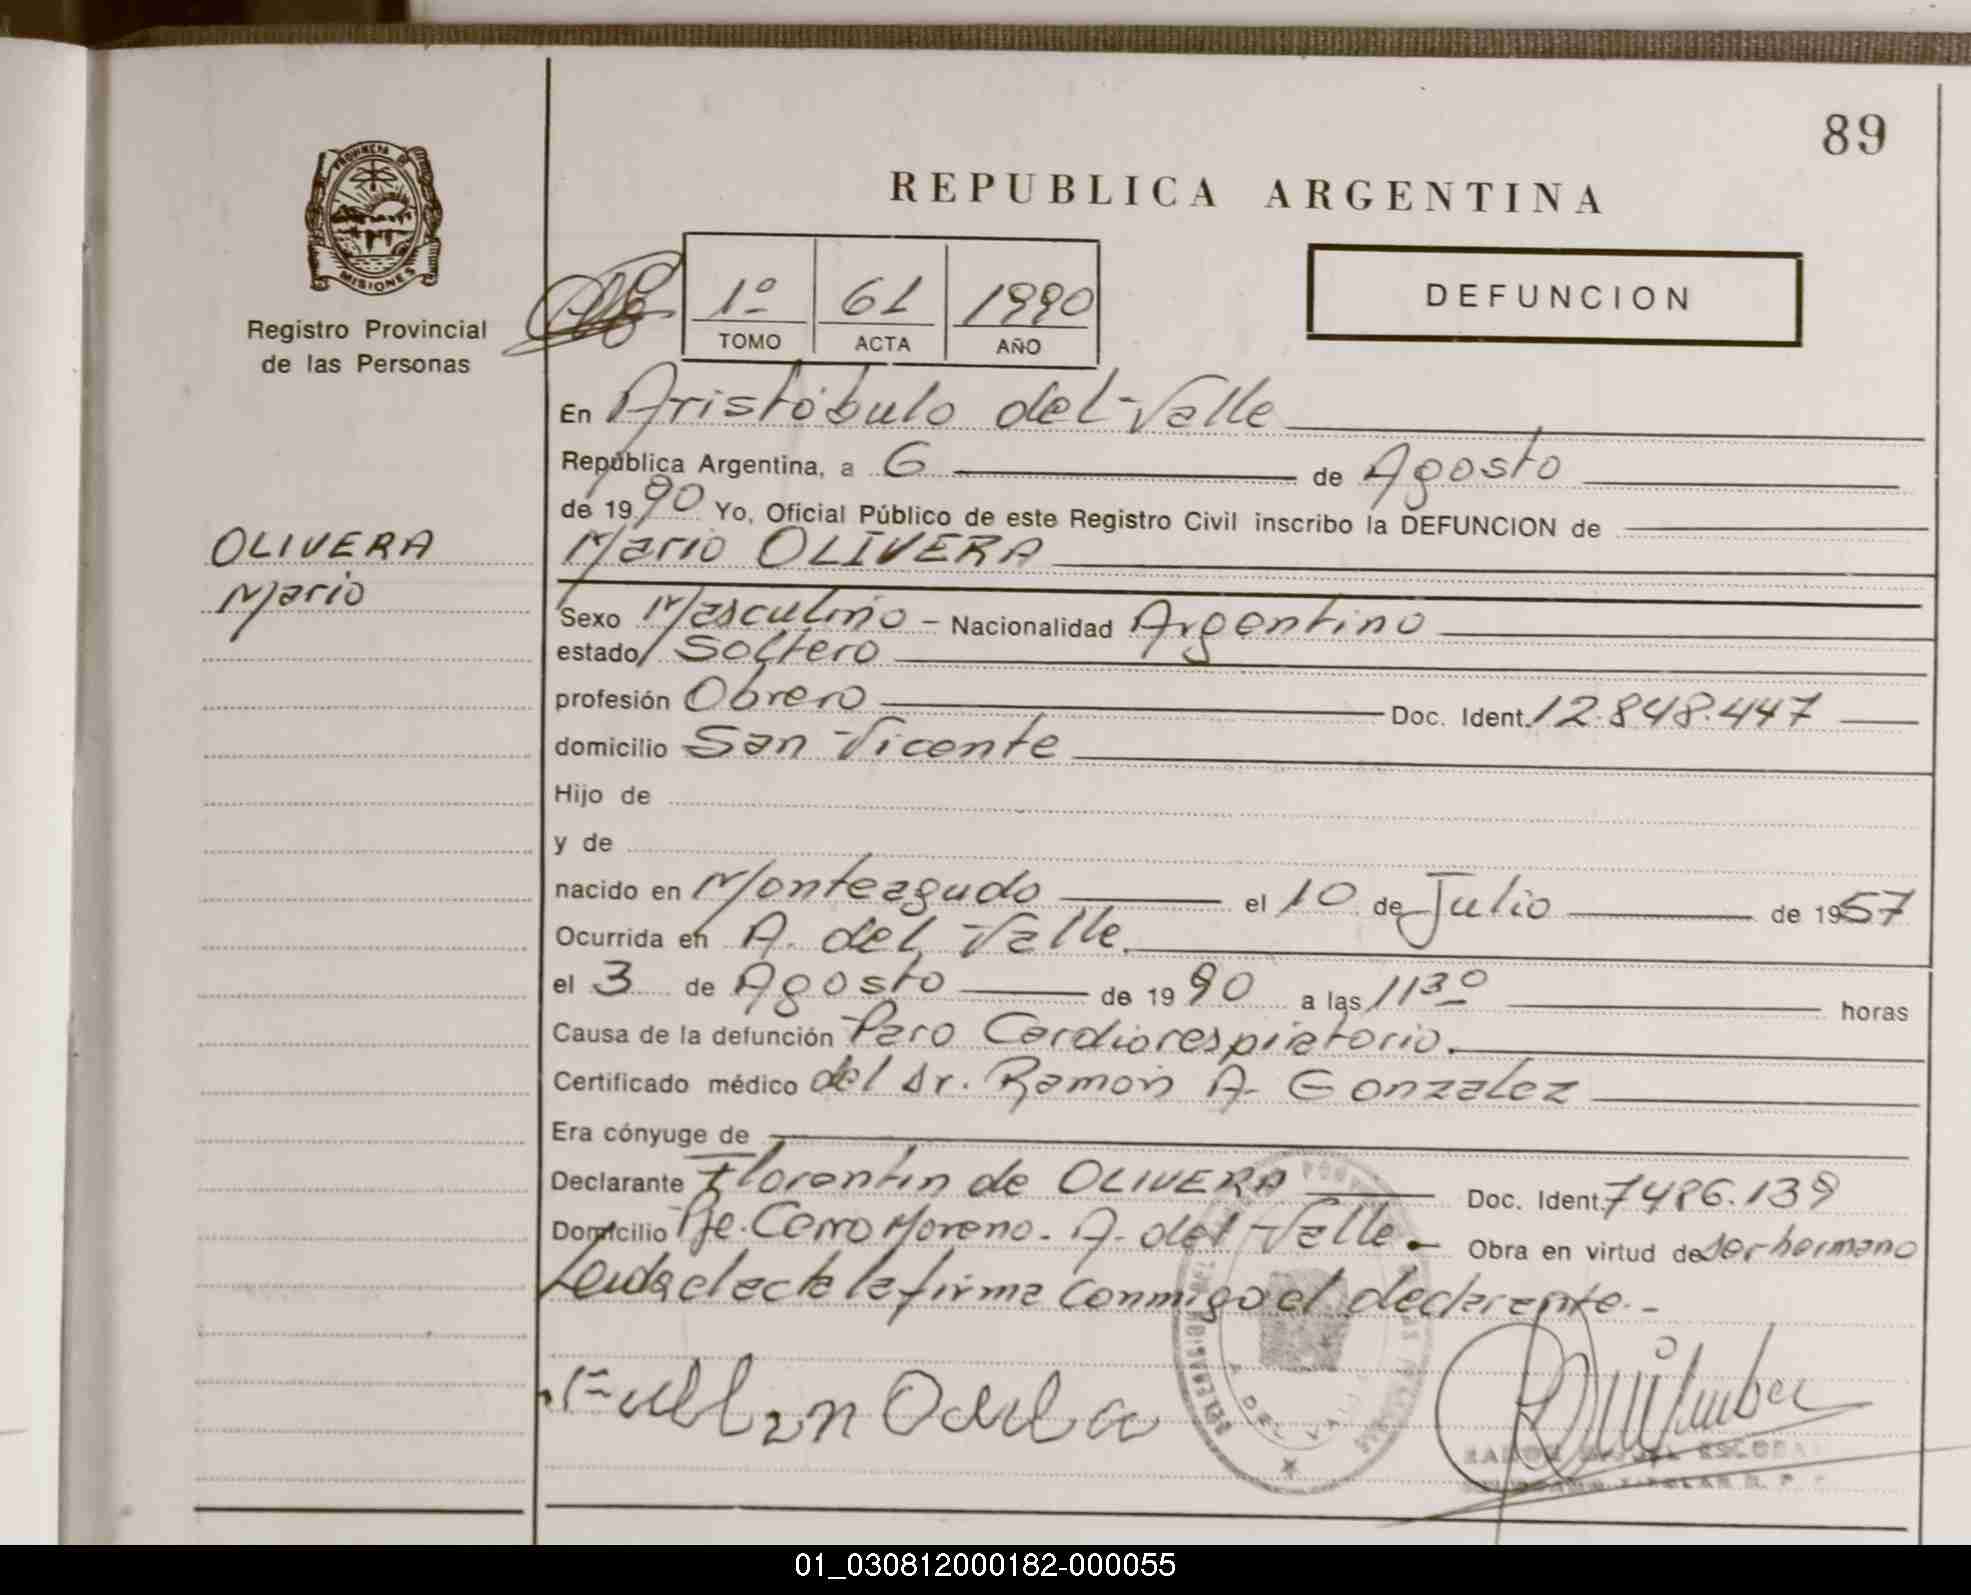 89
REPUBLICA ARGENTINA
PROVINCIA DE
MISIONES
Registro Provincial
de las Personas
1º 61 1990
TOMO ACTA AÑO
DEFUNCION
En Aristóbulo del Valle
República Argentina, a 6 de Agosto
de 1990 Yo, Oficial Público de este Registro Civil inscribo la DEFUNCION de
OLIVERA
Mario
Mario OLIVERA
Sexo Masculino - Nacionalidad Argentino
estado Soltero
profesión Obrero Doc. Ident. 12.848.447
domicilio San Vicente
Hijo de
y de
nacido en Monteagudo el 10 de Julio de 1957
Ocurrida en A. del Valle.
el 3 de Agosto de 1990 a las 11 30 horas
Causa de la defunción Paro Cardiorespiratorio.
Certificado médico del Dr. Ramón A. Gonzalez
Era cónyuge de
Declarante Florentin de OLIVERA Doc. Ident. 7486.139
Domicilio Pje. Cerro Moreno - A. del Valle. Obra en virtud de ser hermano
Leida el acta la firma conmigo el declarante.-
A DEL VALLE
01_030812000182-000055